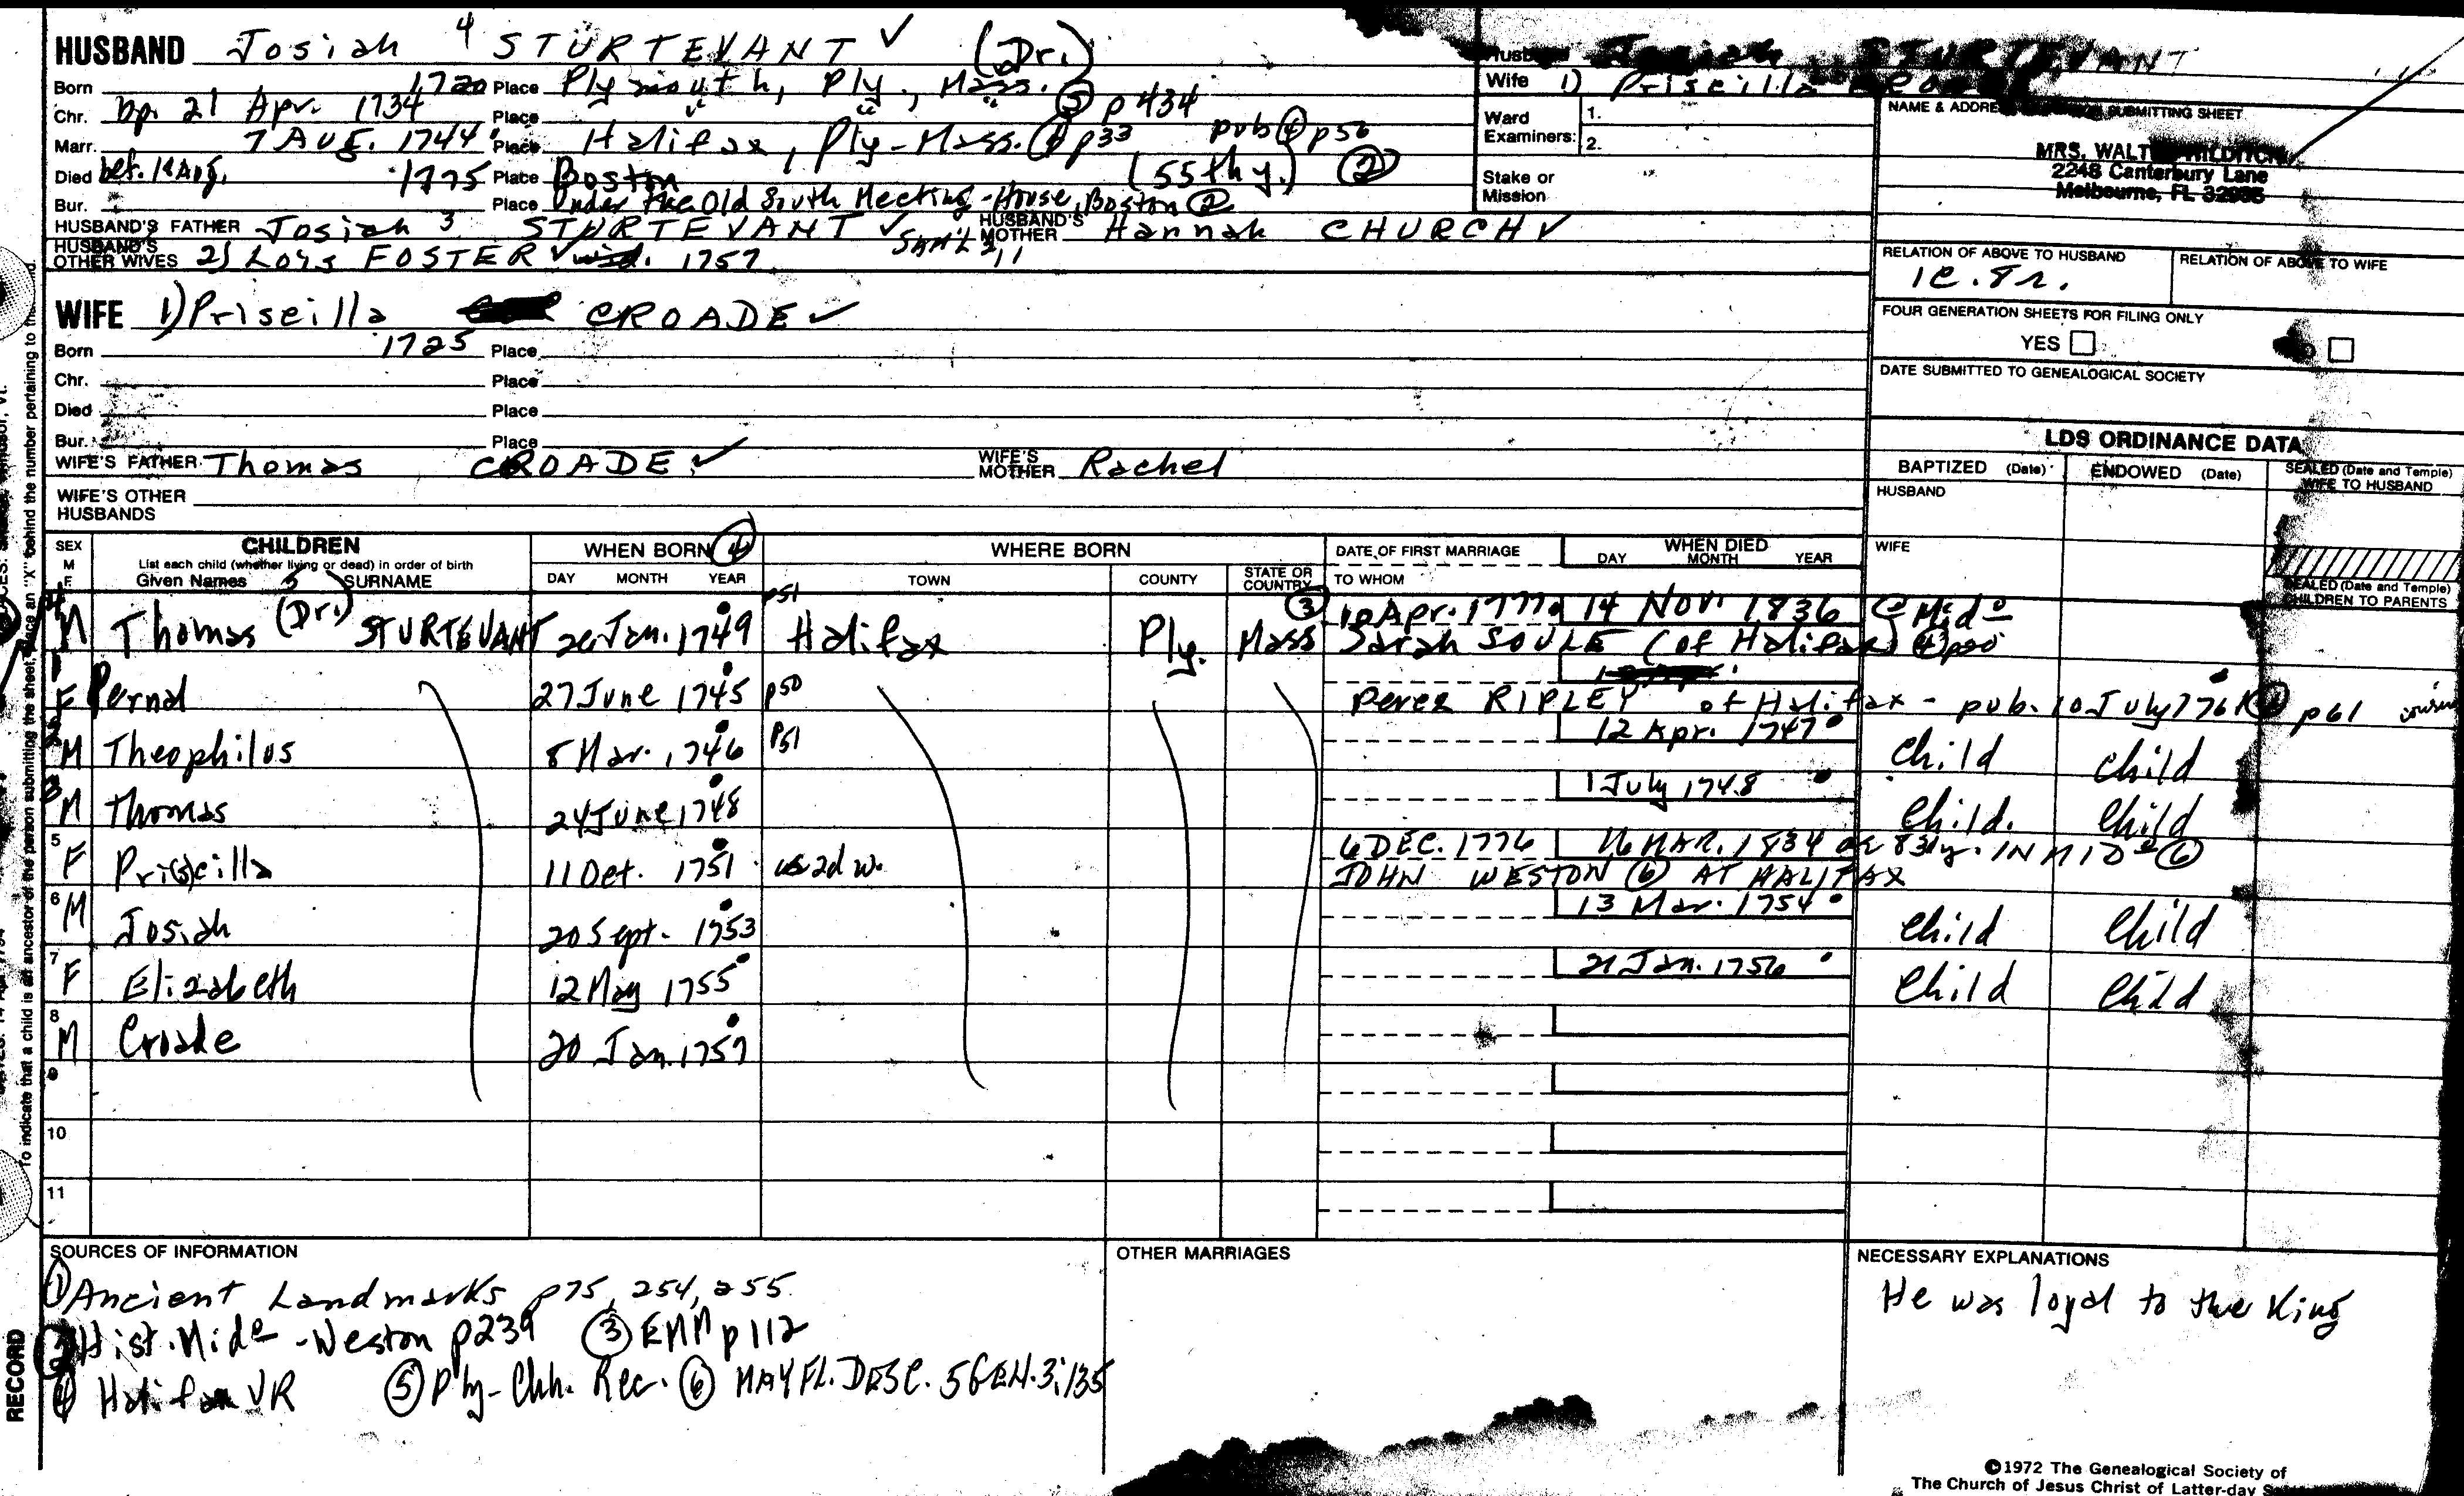 HUSBAND Josiah 4 STURTEVANT ✓ (Dr.)
Born 1720 Place Plymouth, Ply., Mass.
Chr. bp. 21 Apr. 1734 Place ⑤ p 434
Marr. 7 AUG. 1744 Place Halifax, Ply-Mass. ④ p33 pub ④ p56
Died bef. 18 Aug. 1775 Place Boston (55th y.) ②
Bur. Place Under the Old South Meeting-House, Boston ②
HUSBAND'S FATHER Josiah 3 STURTEVANT ✓ SAM'L 2,1 HUSBAND'S MOTHER Hannah CHURCH ✓
HUSBAND'S OTHER WIVES 2) Lois FOSTER ✓ wid. 1757
Husband STURTEVANT
Wife 1) Priscilla
Ward Examiners: 1.
2.
Stake or Mission
NAME & ADDRESS SUBMITTING SHEET
MRS. WALT
2248 Canterbury Lane
Melbourne, FL
RELATION OF ABOVE TO HUSBAND
RELATION OF ABOVE TO WIFE
FOUR GENERATION SHEETS FOR FILING ONLY
YES
DATE SUBMITTED TO GENEALOGICAL SOCIETY
WIFE 1) Priscilla CROADE ✓
Born 1725 Place
Chr. Place
Died Place
Bur. Place
WIFE'S FATHER Thomas CROADE ✓ WIFE'S MOTHER Rachel
WIFE'S OTHER HUSBANDS
LDS ORDINANCE DATA
BAPTIZED (Date) ENDOWED (Date) SEALED (Date and Temple) WIFE TO HUSBAND
HUSBAND
WIFE
SEALED (Date and Temple) CHILDREN TO PARENTS
SEX M F
CHILDREN
List each child (whether living or dead) in order of birth
Given Names 5 SURNAME
WHEN BORN ④
DAY MONTH YEAR
WHERE BORN
TOWN COUNTY STATE OR COUNTRY
DATE OF FIRST MARRIAGE
TO WHOM
WHEN DIED
DAY MONTH YEAR
4 M Thomas (Dr.) STURTEVANT 26 Jan. 1749 p51 Halifax Ply. Mass ③ 10 Apr. 1777 14 Nov. 1836 @ Mid°
Sarah SOULE (of Halifax) ④
1 F Pernal 27 June 1745 p50 Perez RIPLEY of Halifax - pub. 10 July p61 cousin
2 M Theophilos 8 Mar. 1746 p51 12 Apr. 1747 Child Child
3 M Thomas 24 June 1748 1 July 1748 Child. Child
5 F Pri(s)cilla 11 Oct. 1751 as 2d w. 6 DEC. 1776 16 MAR. 1834 IN MID° ⑥
JOHN WESTON ⑥ AT HALIFAX
6 M Josiah 20 Sept. 1753 13 Mar. 1754 Child Child
7 F Elizabeth 12 May 1755 21 Jan. 1756 Child Child
8 M Croade 20 Jan. 1757
9
10
11
SOURCES OF INFORMATION
① Ancient Landmarks p75, 254, 255
② Hist. Mid° - Weston p239 ③ EMM p112
④ Halifax VR ⑤ Ply-Chh. Rec. ⑥ MAYFL. DESC. 5GEN. 3:135
OTHER MARRIAGES
NECESSARY EXPLANATIONS
He was loyal to the King
RECORD
To indicate that a child is an ancestor of the person submitting the sheet, place an "X" behind the number pertaining to
©1972 The Genealogical Society of
The Church of Jesus Christ of Latter-day